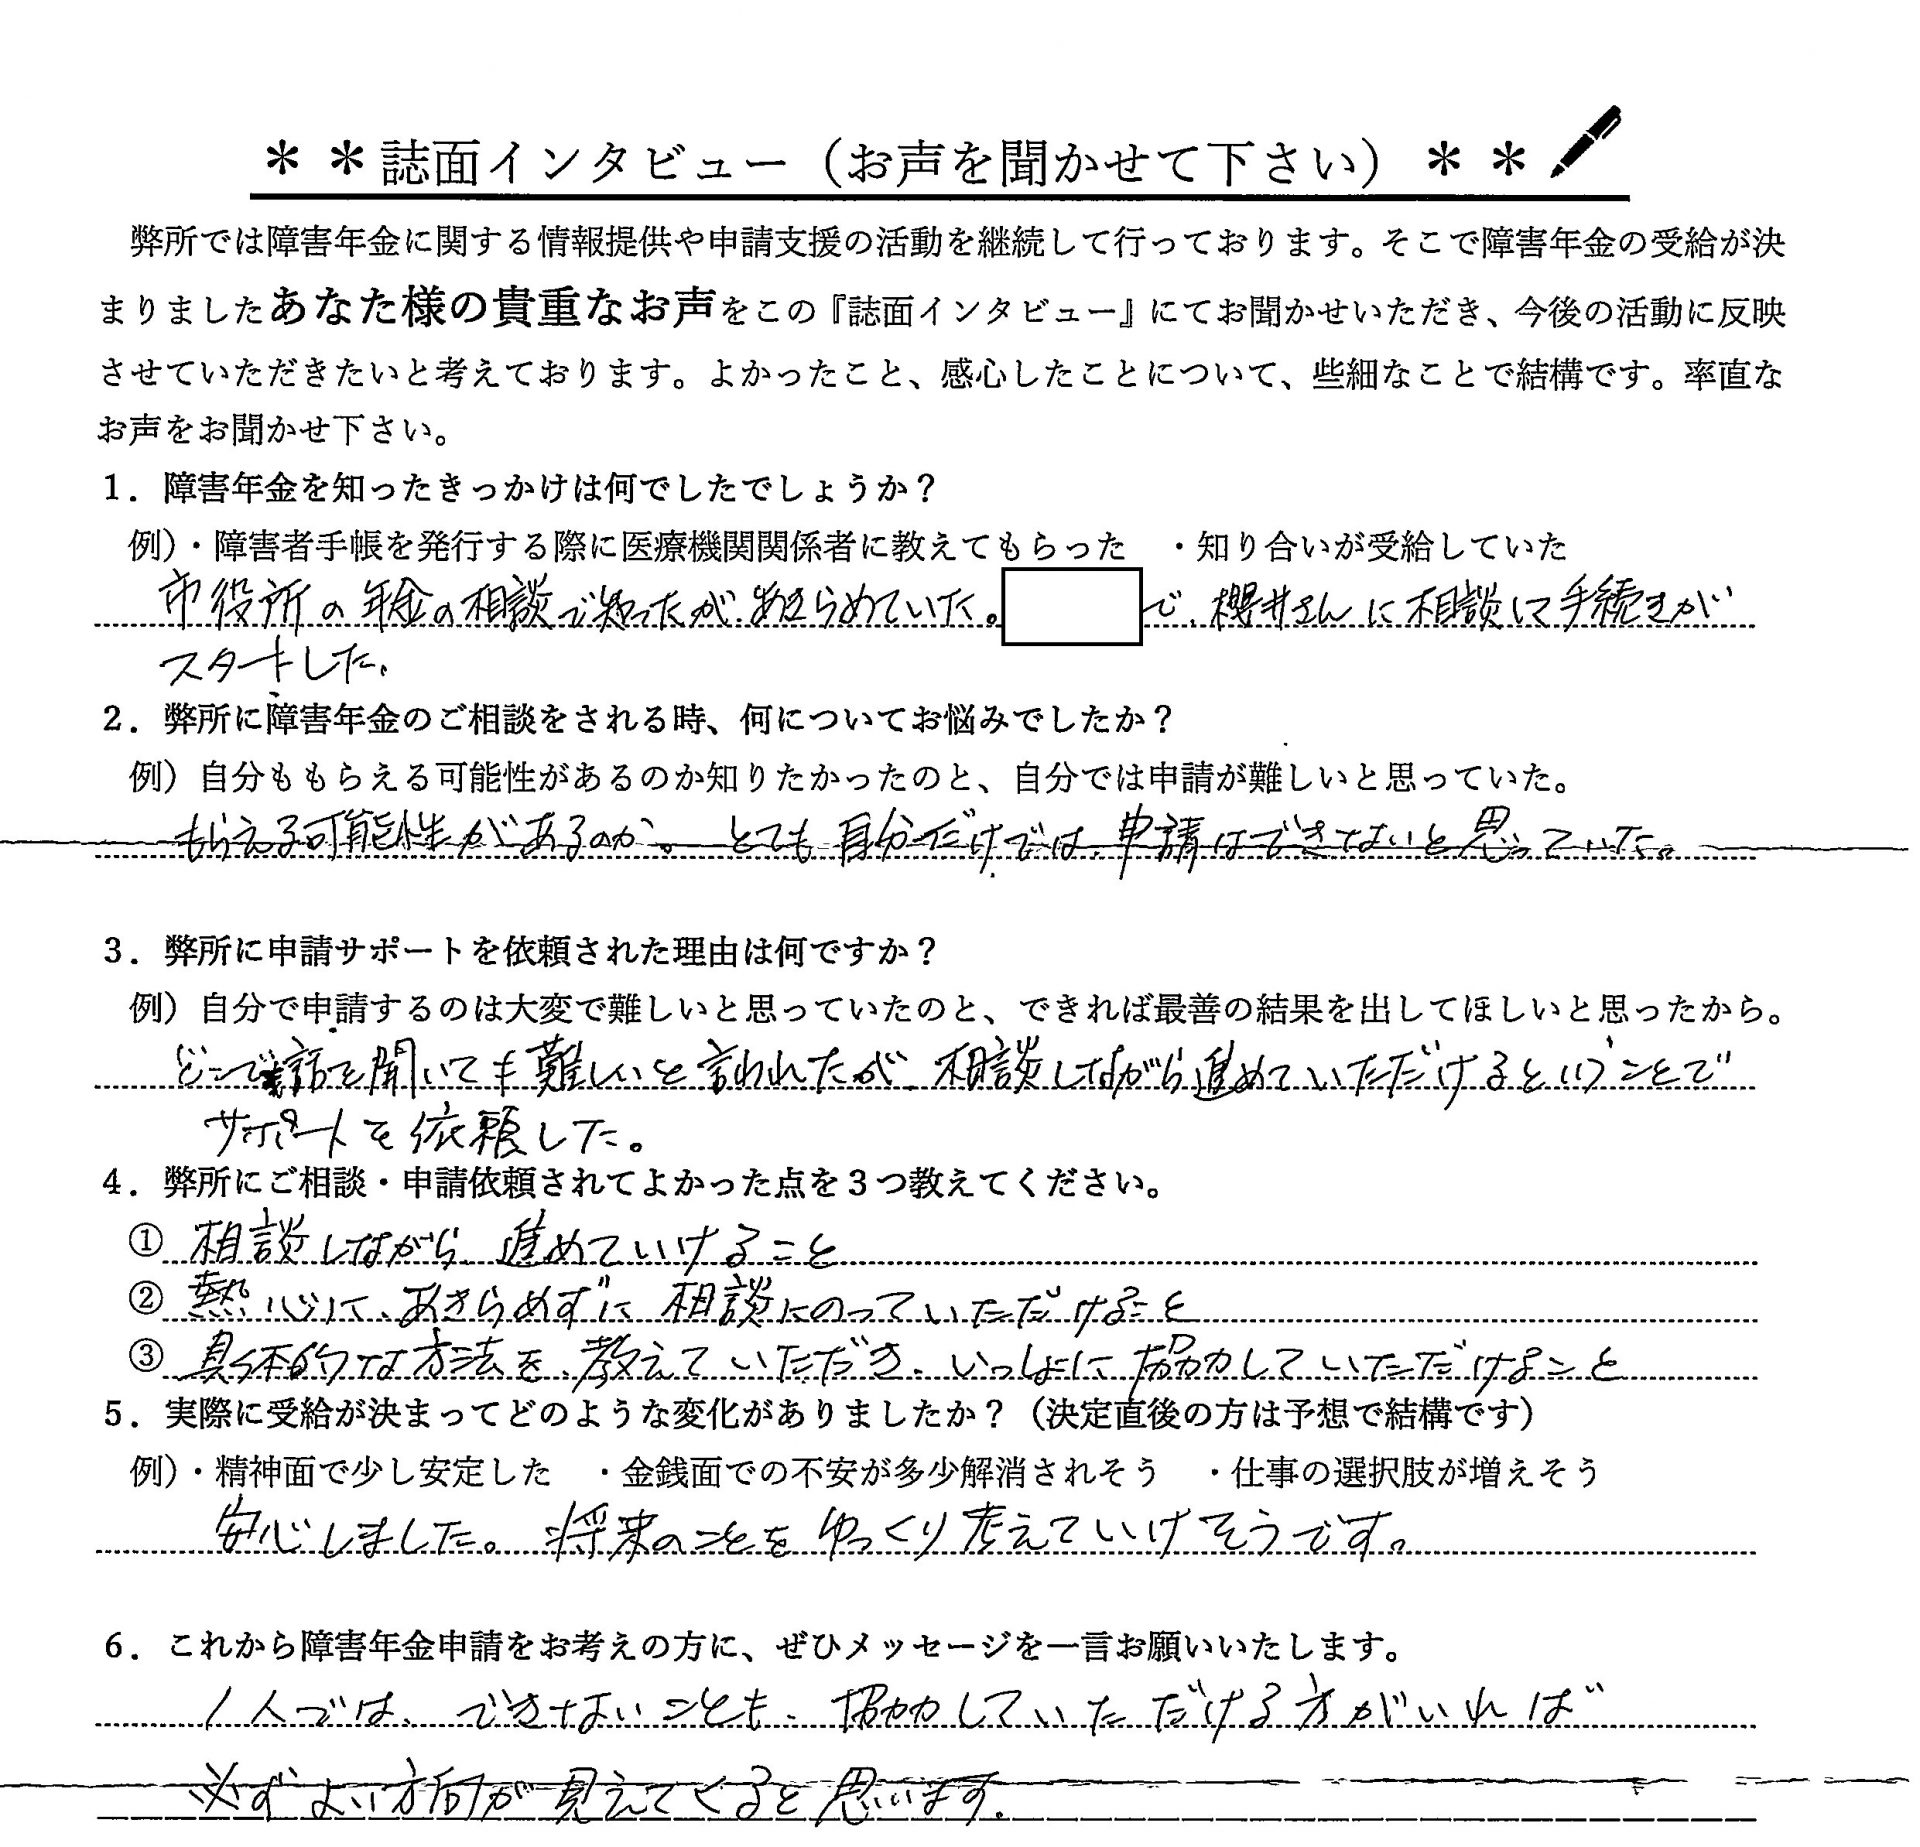 ＊＊誌面インタビュー（お声を聞かせて下さい）＊＊
弊所では障害年金に関する情報提供や申請支援の活動を継続して行っております。そこで障害年金の受給が決
まりましたあなた様の貴重なお声をこの『誌面インタビュー』にてお聞かせいただき、今後の活動に反映
させていただきたいと考えております。よかったこと、感心したことについて、些細なことで結構です。率直な
お声をお聞かせ下さい。
1．障害年金を知ったきっかけは何でしたでしょうか？
例）・障害者手帳を発行する際に医療機関関係者に教えてもらった　・知り合いが受給していた
市役所の年金の相談で知ったが、あきらめていた。で、櫻井さんに相談して手続きが
スタートした。
2．弊所に障害年金のご相談をされる時、何についてお悩みでしたか？
例）自分ももらえる可能性があるのか知りたかったのと、自分では申請が難しいと思っていた。
もらえる可能性があるのか。とても自分だけでは、申請はできないと思っていた。
3．弊所に申請サポートを依頼された理由は何ですか？
例）自分で申請するのは大変で難しいと思っていたのと、できれば最善の結果を出してほしいと思ったから。
どこで話を聞いても難しいと言われたが、相談しながら進めていただけるということで
サポートを依頼した。
4．弊所にご相談・申請依頼されてよかった点を３つ教えてください。
① 相談しながら、進めていけること
② 熱心に、あきらめずに相談にのっていただけること
③ 具体的な方法を、教えていただき、いっしょに協力していただけること
5．実際に受給が決まってどのような変化がありましたか？（決定直後の方は予想で結構です）
例）・精神面で少し安定した　・金銭面での不安が多少解消されそう　・仕事の選択肢が増えそう
安心しました。将来のことをゆっくり考えていけそうです。
6．これから障害年金申請をお考えの方に、ぜひメッセージを一言お願いいたします。
1人では、できないことも、協力していただける方がいれば
必ずよい方向が見えてくると思います。